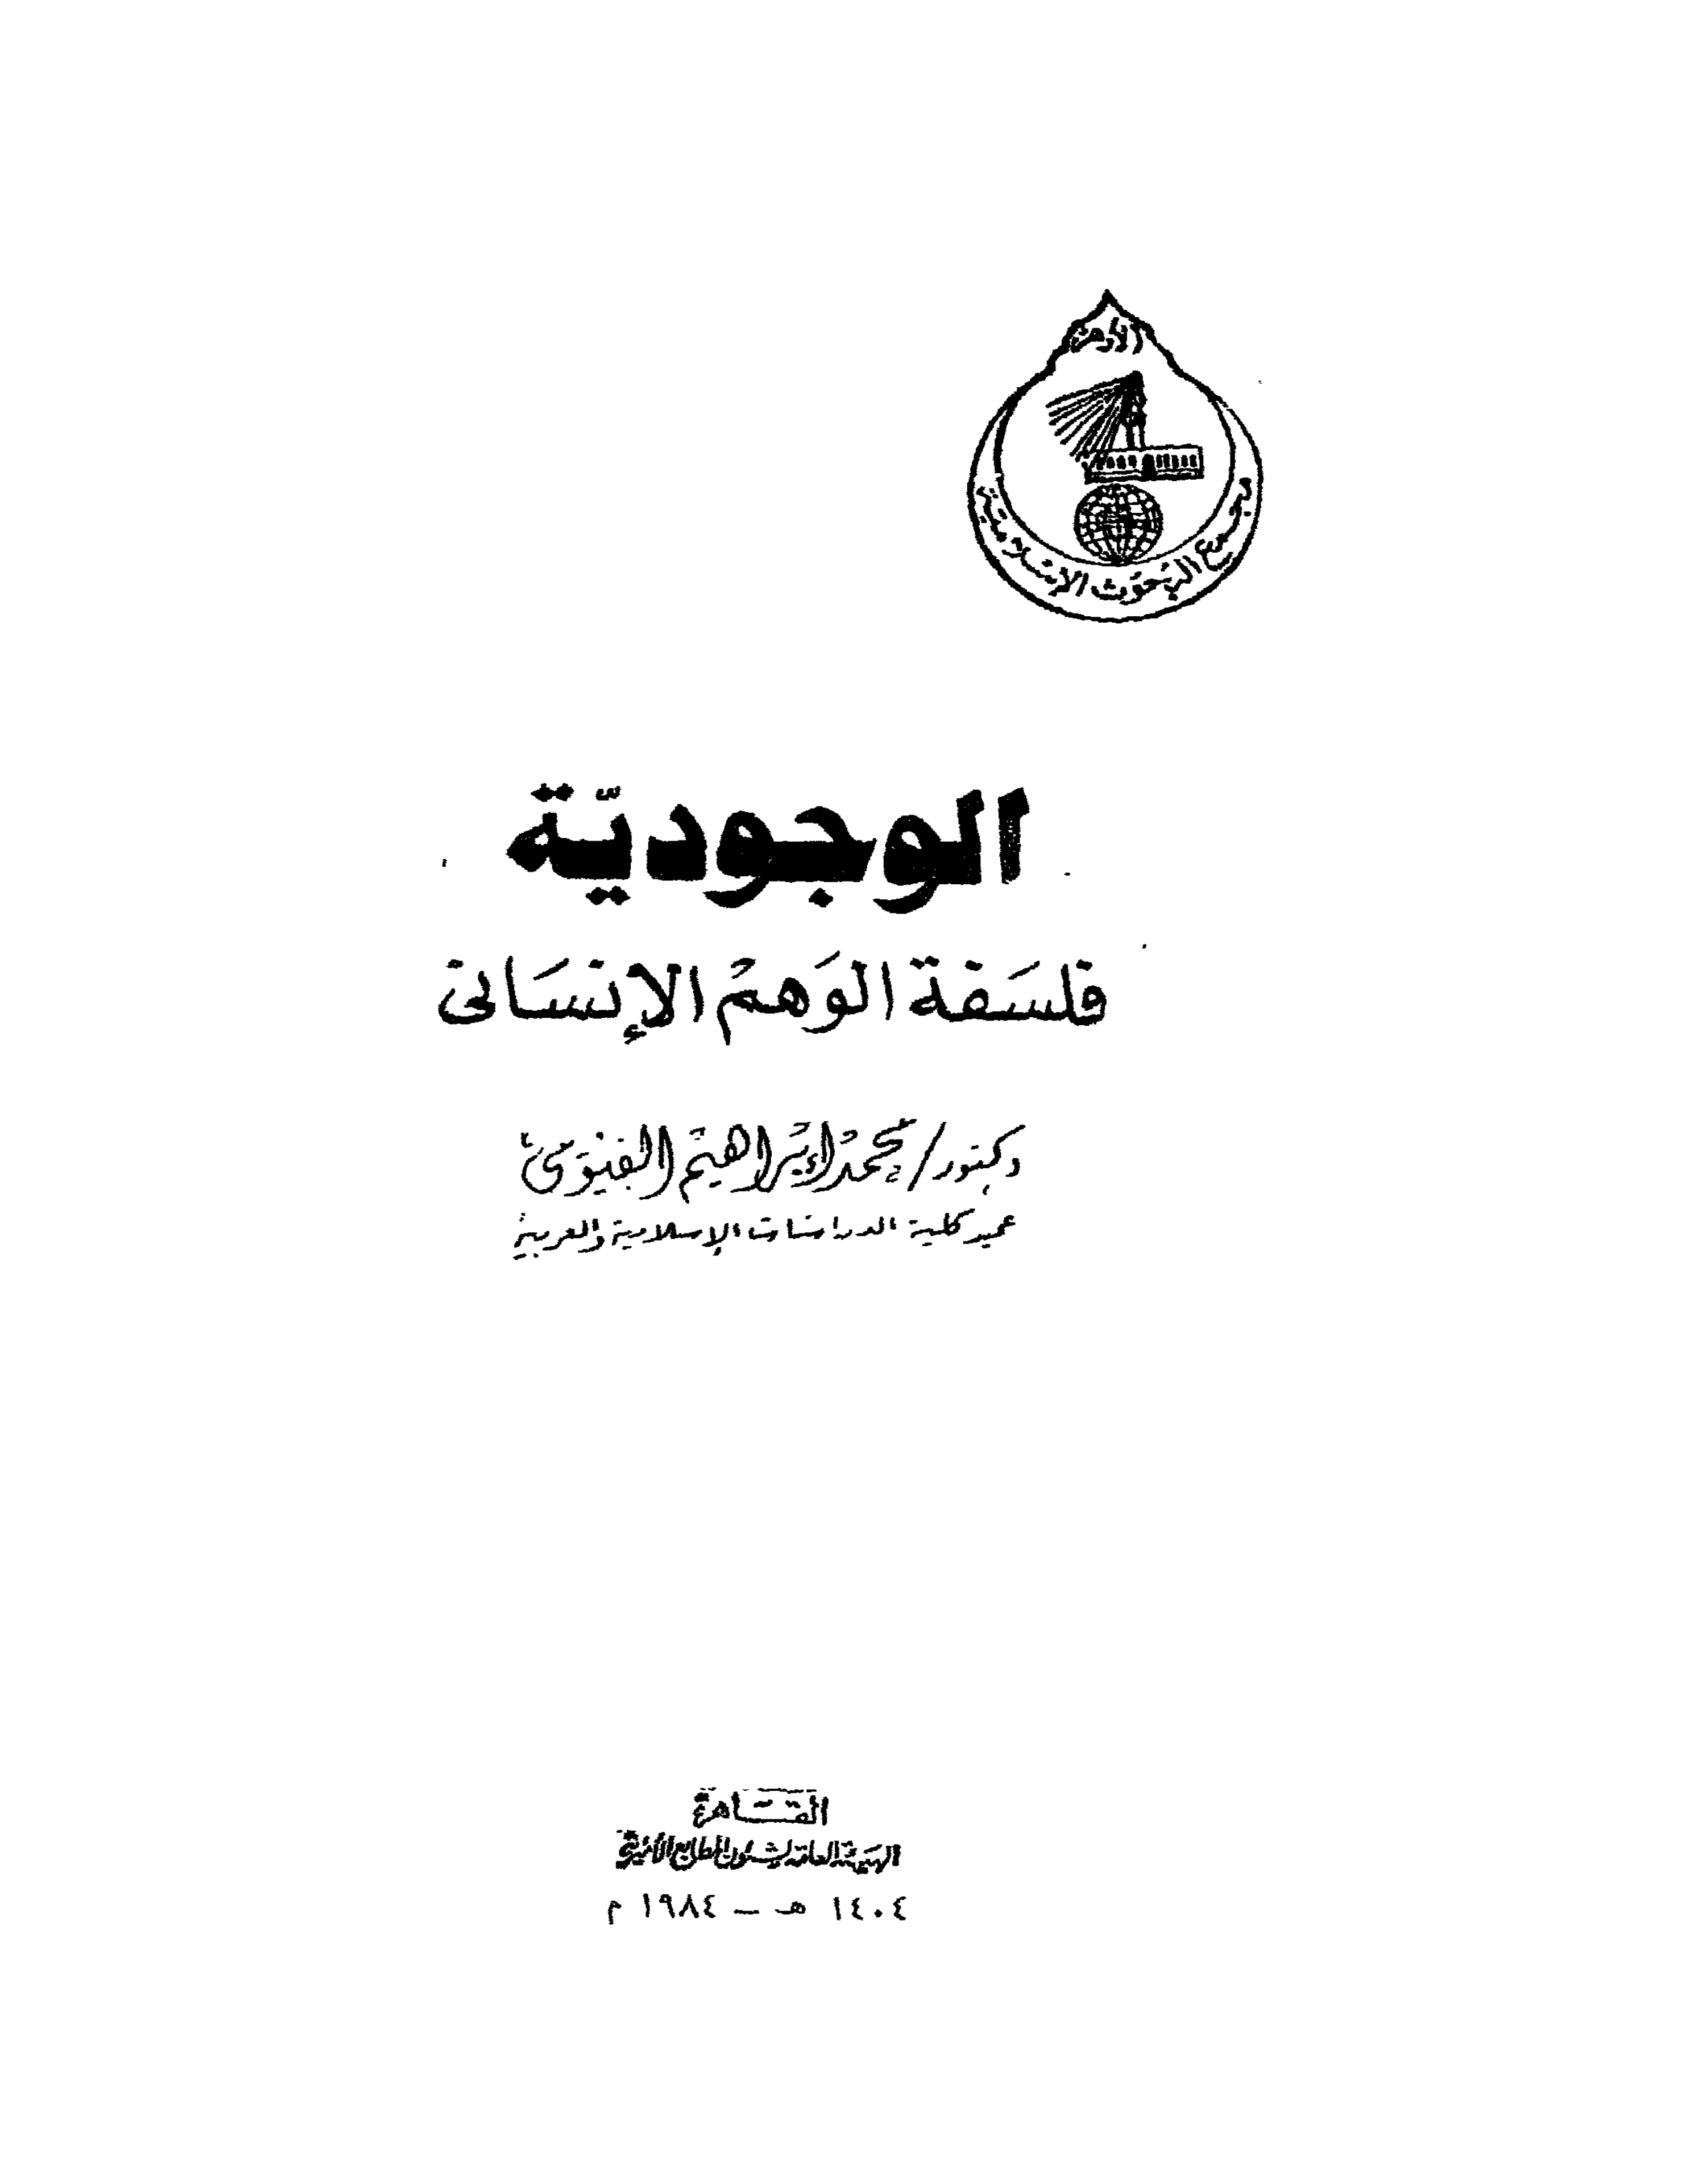 الأزهر
مجمع البحوث الإسلامية
الوجوديّة
فلسَفة الوَهمْ الإنسَانى
دكتور/ محمد إبراهيم الفيومى
عميد كلية الدراسات الإسلامية والعربية
القاهرة
الهيئة العامة لشئون المطابع الأميرية
١٤٠٤ هـ – ١٩٨٤ م